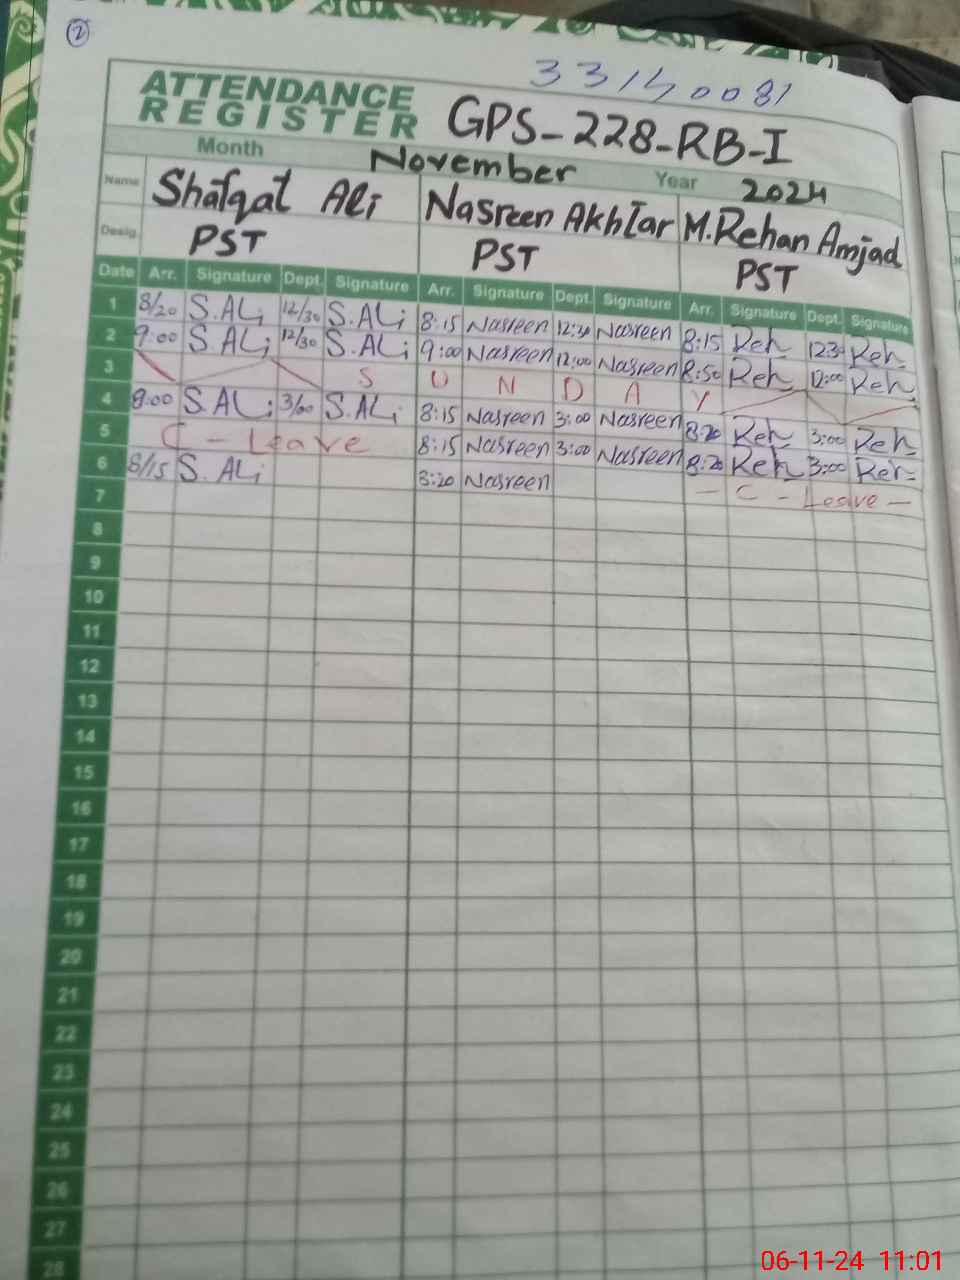 2
33140081
ATTENDANCE
REGISTER GPS-228-RB-I
Month November Year 2024
Name Shafqat Ali Nasreen Akhtar M.Rehan Amjad
Desig. PST PST PST
Date Arr. Signature Dept. Signature Arr. Signature Dept. Signature Arr. Signature Dept. Signature
1 8/20 S.ALi 12/30 S.ALi 8:15 Nasreen 12:30 Nasreen 8:15 Reh 12:30 Reh
2 9:00 S.ALi 12/30 S.ALi 9:00 Nasreen 12:00 Nasreen 8:50 Reh 12:00 Reh
3 S U N D A Y
4 8:00 S.ALi 3/00 S.ALi 8:15 Nasreen 3:00 Nasreen 8:20 Reh 3:00 Reh
5 C - Leave 8:15 Nasreen 3:00 Nasreen 8:20 Reh 3:00 Reh
6 8/15 S.ALi 8:20 Nasreen - C - Leave -
7
8
9
10
11
12
13
14
15
16
17
18
19
20
21
22
23
24
25
26
27
28
06-11-24 11:01